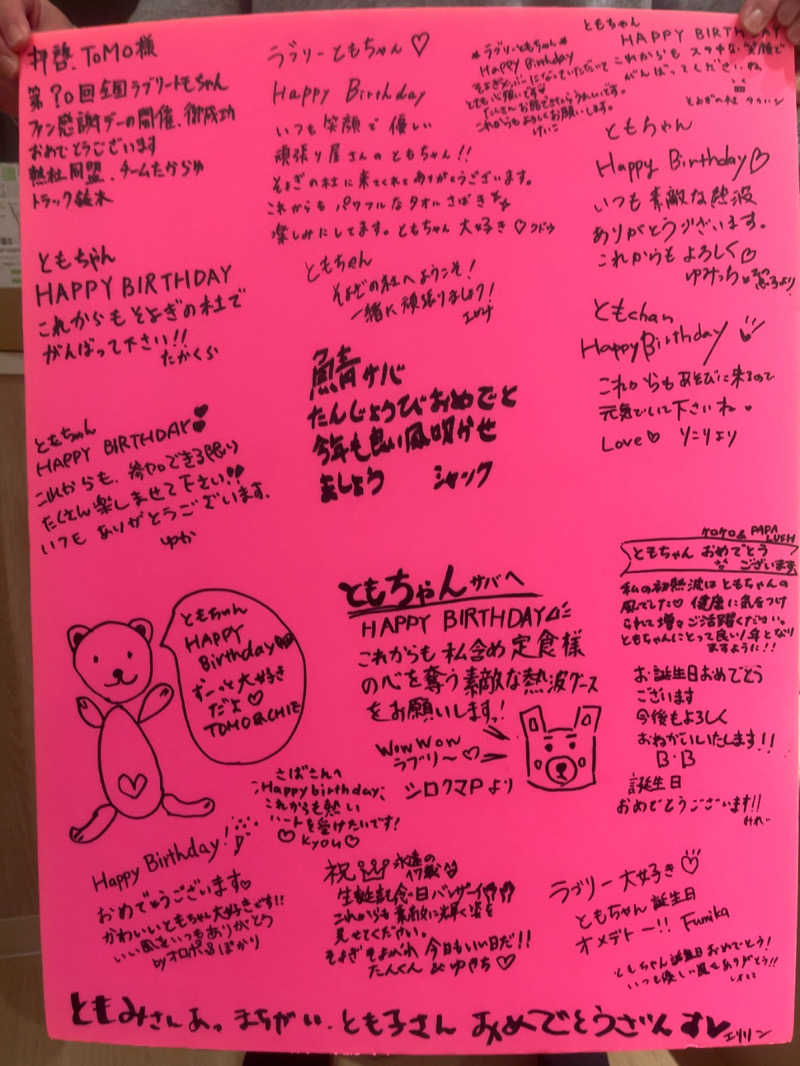 拝啓、TOMO様
第90回全国ラブリートもちゃん
ファン感謝デーの開催、御成功
おめでとうございます
熱社同盟、チームたからゆ
トラック鈴木
ラブリーともちゃん♡
Happy Birthday
いつも笑顔で優しい
頑張り屋さんのともちゃん!!
そよぎの杜に来てくれてありがとうございます。
これからもパワフルなタオルさばき
楽しみにしてます。ともちゃん大好き♡クドウ
ラブリーともちゃん
Happy Birthday
そよぎメンバーになっていただいて
とても心強いです
たくさんお話できたらうれしいです。
これからもよろしくお願いします。
けいこ
ともちゃん
HAPPY BIRTHDAY
これからもステキな笑顔で
がんばってくださいね
そよぎの杜
ともちゃん
Happy Birthday♡
いつも素敵な熱波
ありがとうございます。
これからもよろしく♡
ゆみっちょ
ともちゃん
HAPPY BIRTHDAY
これからもそよぎの杜で
がんばって下さい!!
たかくら
ともちゃん
そよぎの杜へようこそ!
一緒に頑張りましょう!
ともchan
Happy Birthday
これからもあそびに来るので
元気でいて下さいね
Love♡ リニリより
鯖サバ
たんじょうびおめでと
今年も良い風吹かせ
ましょう シャック
ともちゃん
HAPPY BIRTHDAY
これからも、参加できる限り
たくさん楽しませて下さい!!
いつもありがとうございます。
ゆか
ココロ& PAPA LUSH
ともちゃん おめでとう
ございます
私の初熱波はともちゃんの
風でした♡ 健康に気をつけ
られて増々ご活躍ください。
ともちゃんにとって良い年となり
ますように!!
ともちゃん
HAPPY
Birthday
ずーっと大好き
だよ♡
TOMO&CHIE
ともちゃんサバへ
HAPPY BIRTHDAY
これからも私含め定食様
の心を奪う素敵な熱波グース
をお願いします!
WOWWOW
ラブリ〜♡
シロクマPより
お誕生日おめでとう
ございます
今後もよろしく
おねがいいたします!!
B・B
誕生日
おめでとうございます!!
さばさんへ
Happy birthday、
これからも熱い
ハートを受けたいです!
♡ Kyou ♡
Happy Birthday!
おめでとうございます♡
かわいいともちゃん大好きです!!
いい風をいつもありがとう
byオロポ&ぽかり
祝 永遠の
17歳
生誕記念日バンザーイ
これからも素敵に輝く姿を
見せてください。
そよぎそよがれ 今日もいい日だ!!
たんくん & ゆきち♡
ラブリー大好き♡
ともちゃん誕生日
オメデトー!! Fumika
ともちゃん誕生日おめでとう!
いつも優しい風をありがとう!!
ともみさんあっまちがい、とも子さん おめでとうざんす エリリン